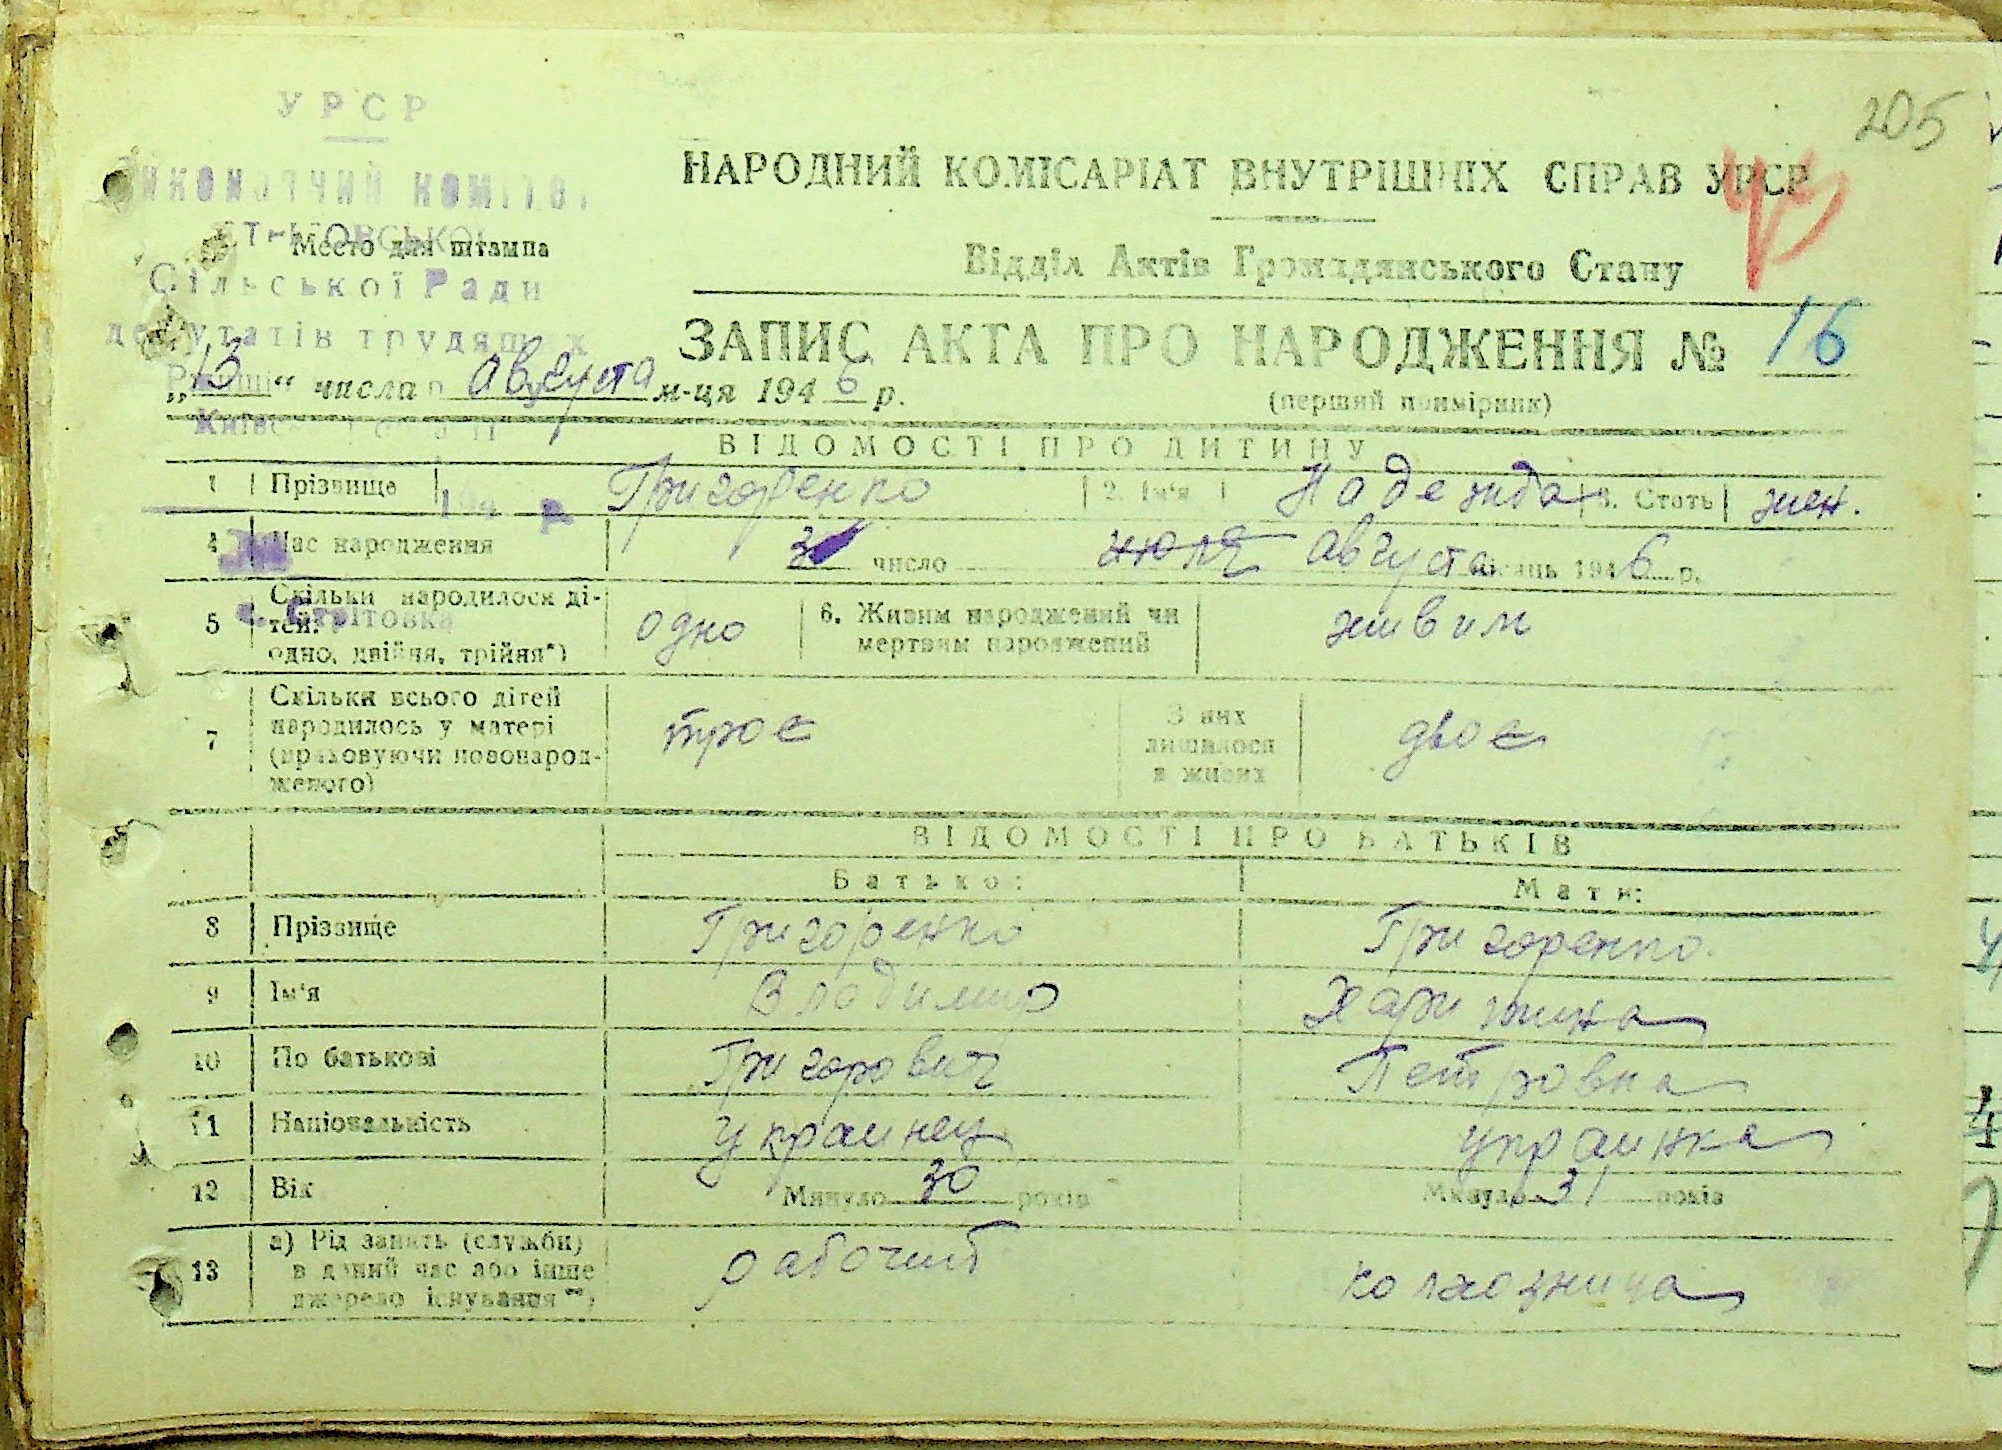 205
УРСР
Виконавчий комітет
Стрітовської
Место для штампа
Сільської Ради
депутатів трудящих
НАРОДНИЙ КОМІСАРІАТ ВНУТРІШНІХ СПРАВ УРСР
Відділ Актів Громадянського Стану
ЗАПИС АКТА ПРО НАРОДЖЕННЯ № 16
(перший примірник)
„13“ числа августа м-ця 1946 р.
ВІДОМОСТІ ПРО ДИТИНУ
1 Прізвище Григоренко 2. Ім'я Надежда 3. Стать жен.
194 р
4 Час народження 3 число июля августа місяць 1946 р.
5 Скільки народилося ді-
тей:
одно, двійня, трійня*) одно 6. Живим народжений чи
мертвим народжений живим
с. Стрітовка
7 Скільки всього дітей
народилось у матері
(враховуючи новонарод-
женого) троє З них
лишилося
в живих двоє
ВІДОМОСТІ ПРО БАТЬКІВ
Батько: Мати:
8 Прізвище Григоренко Григоренко
9 Ім'я Владимир Харитина
10 По батькові Григорович Петровна
11 Національність украинец украинка
12 Вік Минуло 30 років Минуло 31 років
13 а) Рід занять (служби)
в даний час або інше
джерело існування**) рабочий колхозница